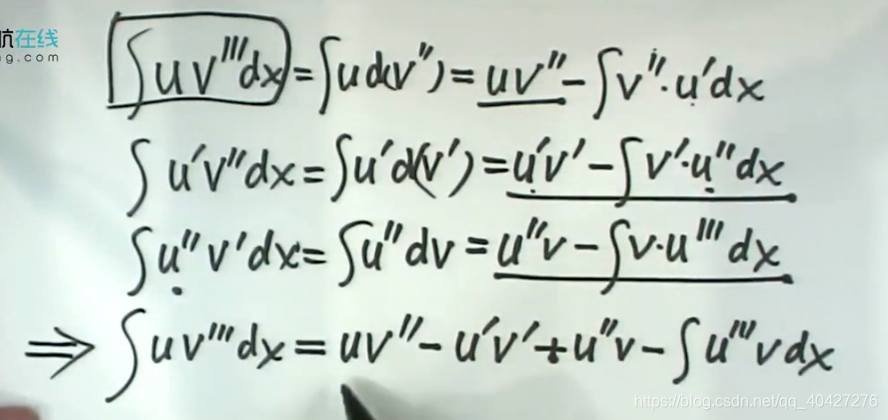 航在线
g.com
∫uv'''dx = ∫ud(v'') = uv'' - ∫v''·u'dx
∫u'v''dx = ∫u'd(v') = u'v' - ∫v'·u''dx
∫u''v'dx = ∫u''dv = u''v - ∫v·u'''dx
⇒ ∫uv'''dx = uv'' - u'v' + u''v - ∫u'''vdx
https://blog.csdn.net/qq_40427276